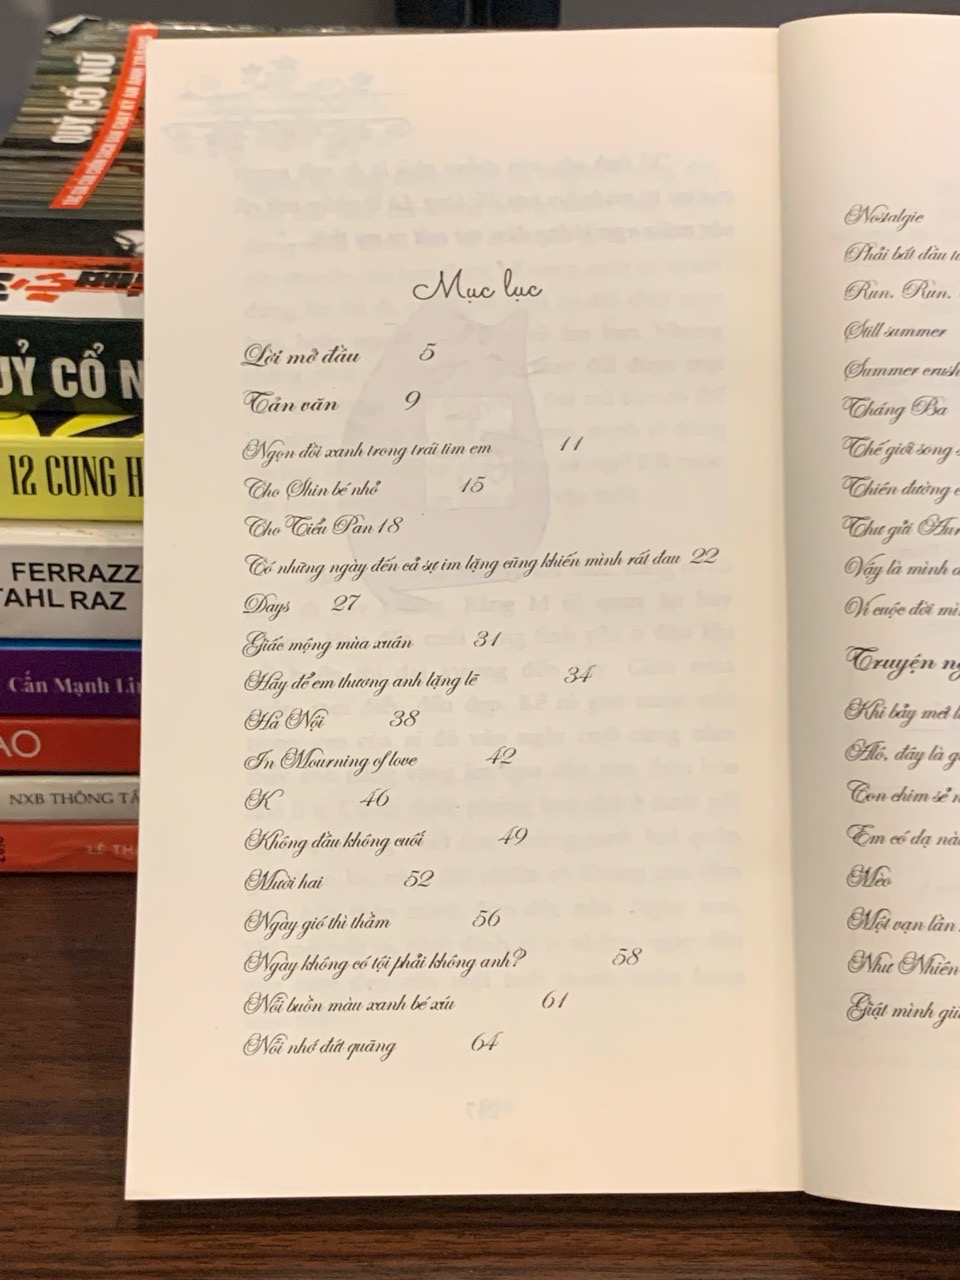 QUỶ CỔ NỮ
QUỶ CỔ N
12 CUNG H
FERRAZZ
TAHL RAZ
Cấn Mạnh Lin
AO
NXB THÔNG TẤ
LÊ THA
Mục lục
Lời mở đầu 5
Tản văn 9
Ngọn đồi xanh trong trái tim em 11
Cho Shin bé nhỏ 15
Cho Tiểu Pan 18
Có những ngày đến cả sự im lặng cũng khiến mình rất đau 22
Days 27
Giấc mộng mùa xuân 31
Hãy để em thương anh lặng lẽ 34
Hà Nội 38
In Mourning of love 42
K 46
Không đầu không cuối 49
Mười hai 52
Ngày gió thì thầm 56
Ngày không có tội phải không anh? 58
Nỗi buồn màu xanh bé xíu 61
Nỗi nhớ đứt quãng 64
Nostalgie
Phải bắt đầu t
Run. Run.
Still summer
Summer crush
Tháng Ba
Thế giới song
Thiên đường
Thư gửi Aur
Vậy là mình
Vì cuộc đời mì
Truyện ng
Khi bảy mét
Alô, đây là g
Con chim sẻ
Em có dạ nà
Mèo
Một vạn lần
Như Nhiên
Giật mình giữ